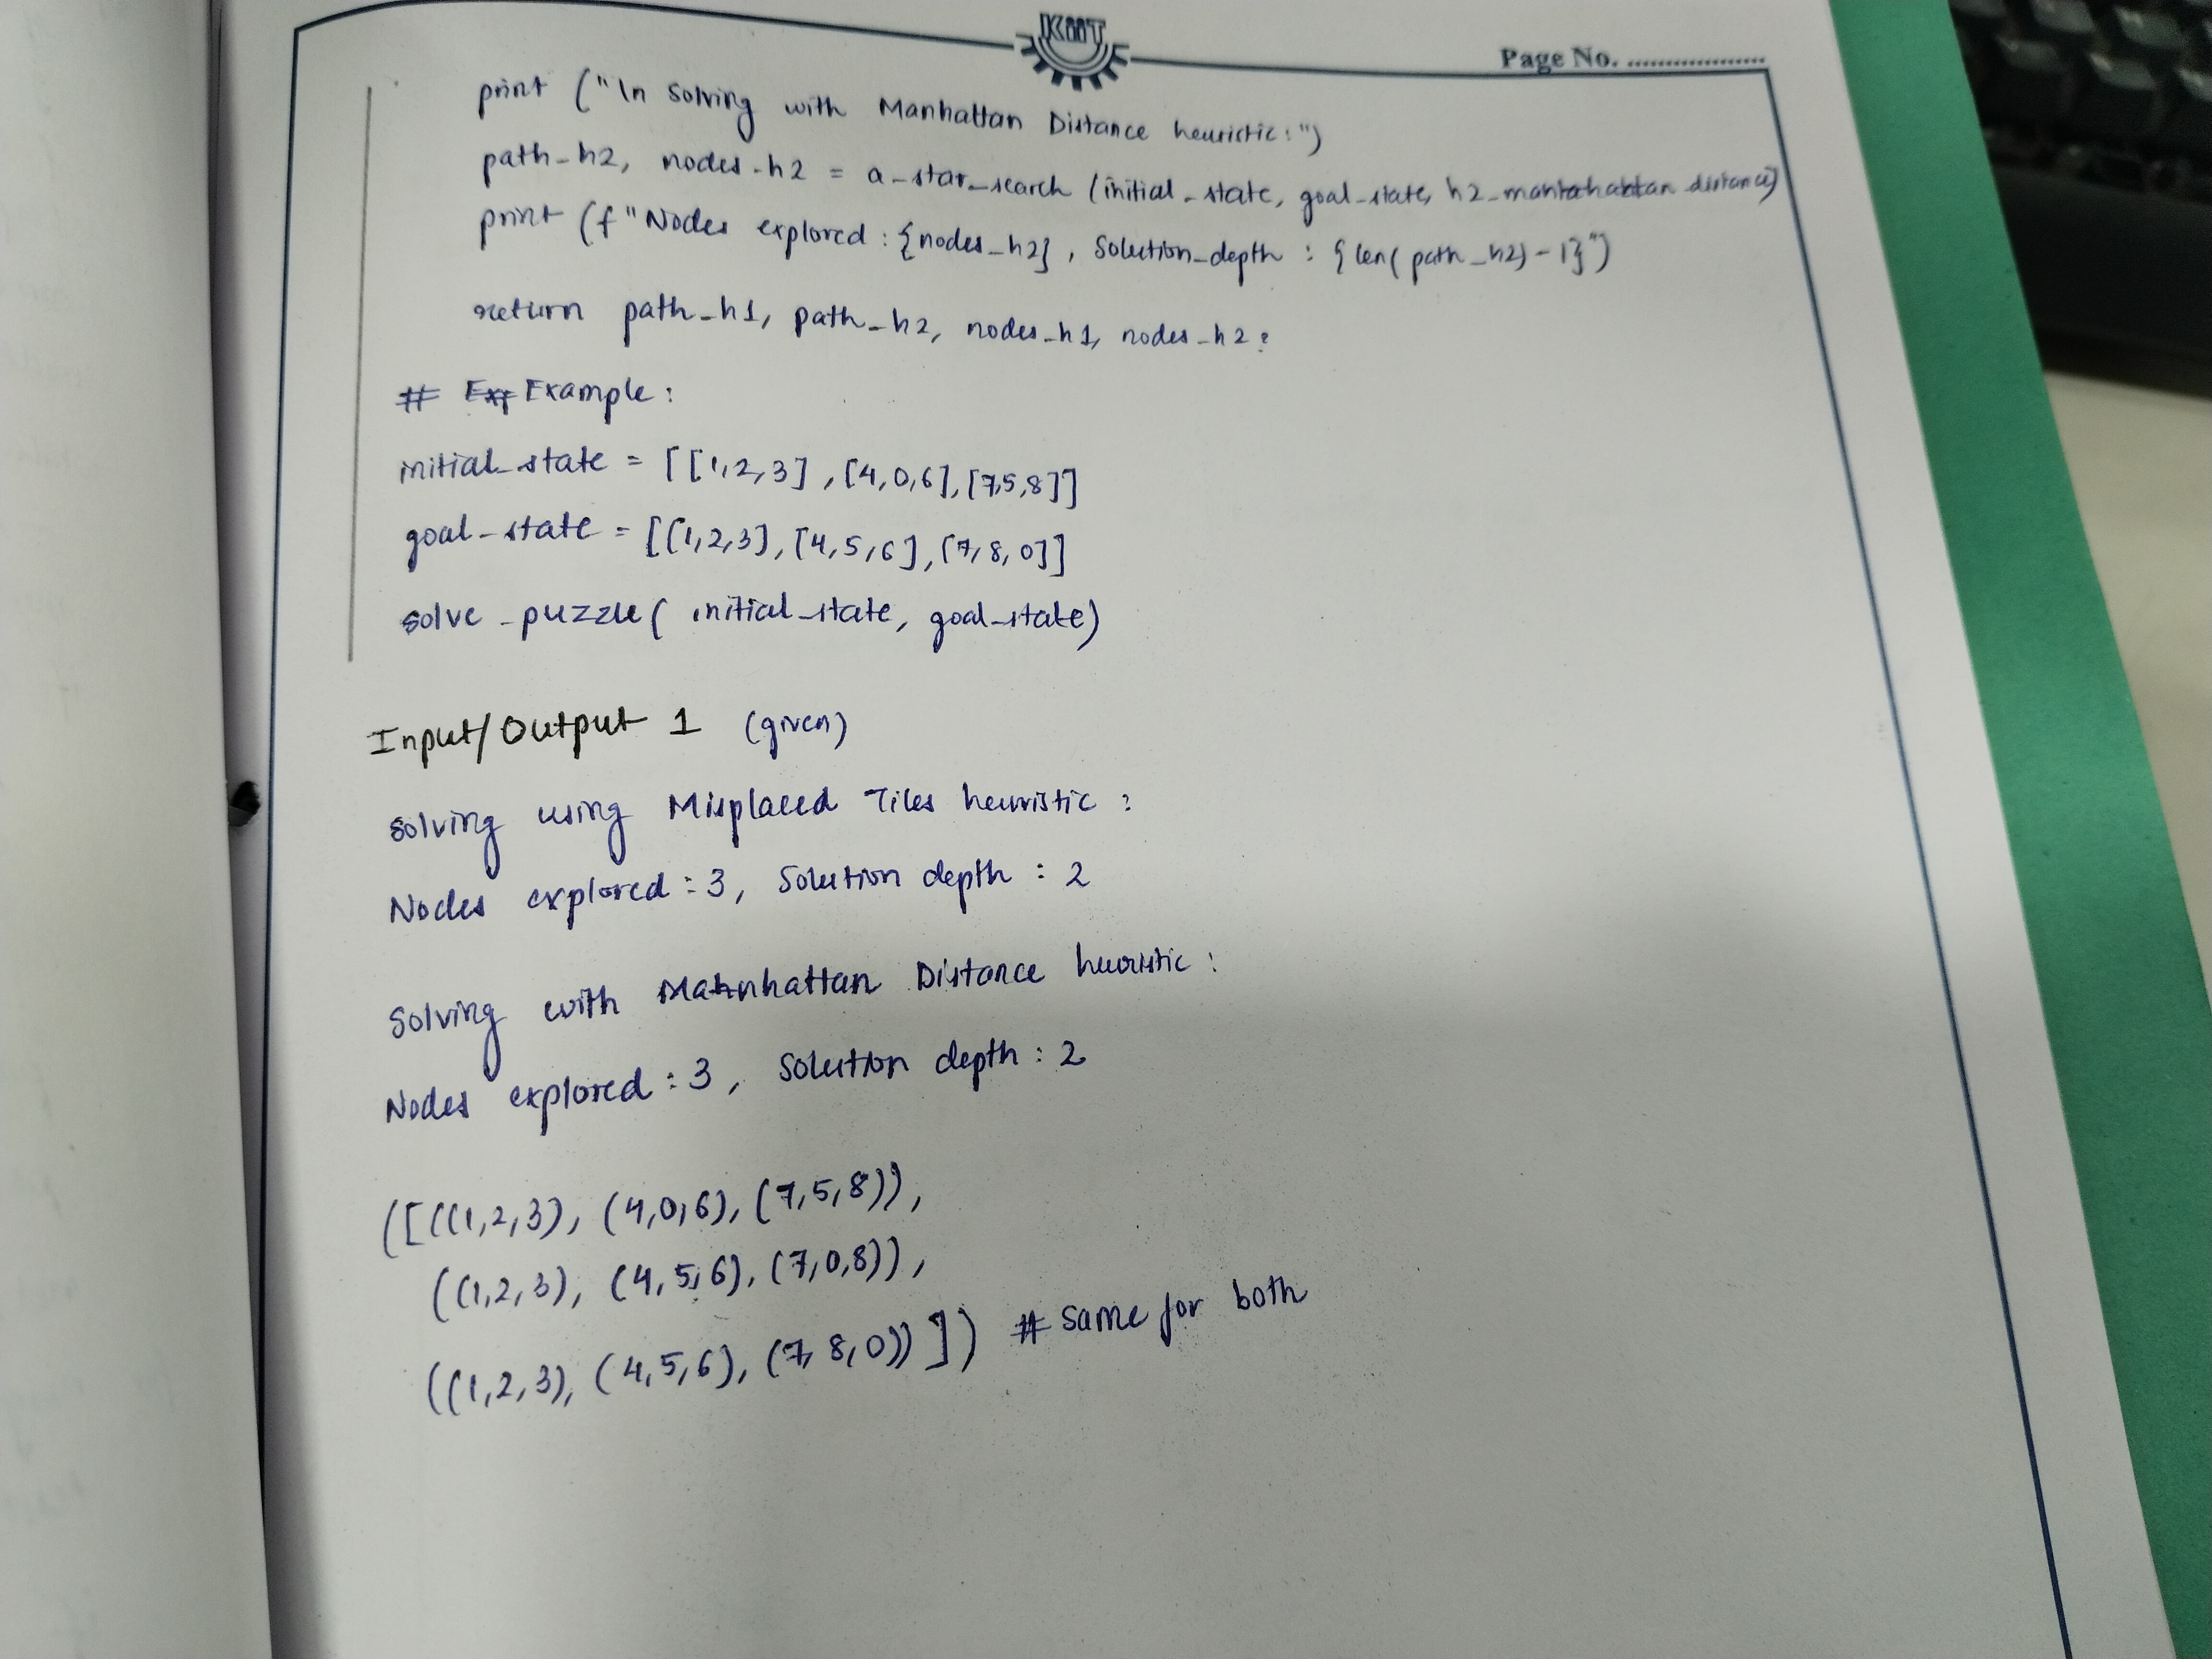 KIIT
Page No. ....................
print ("\n Solving with Manhattan Distance heuristic:")
path_h2, nodes_h2 = a_star_search (initial_state, goal_state, h2_manhattan_distance)
print (f "Nodes explored : {nodes_h2} , Solution_depth : {len( path_h2) - 1}")
return path_h1, path_h2, nodes_h1, nodes_h2
# Example :
initial_state = [[1,2,3] , [4,0,6], [7,5,8]]
goal_state = [[1,2,3], [4,5,6], [7,8,0]]
solve_puzzle( initial_state, goal_state)
Input/Output 1 (given)
Solving using Misplaced Tiles heuristic :
Nodes explored : 3, Solution depth : 2
Solving with Manhattan Distance heuristic :
Nodes explored : 3, Solution depth : 2
([((1,2,3), (4,0,6), (7,5,8)),
((1,2,3), (4,5,6), (7,0,8)),
((1,2,3), (4,5,6), (7,8,0)) ]) # same for both